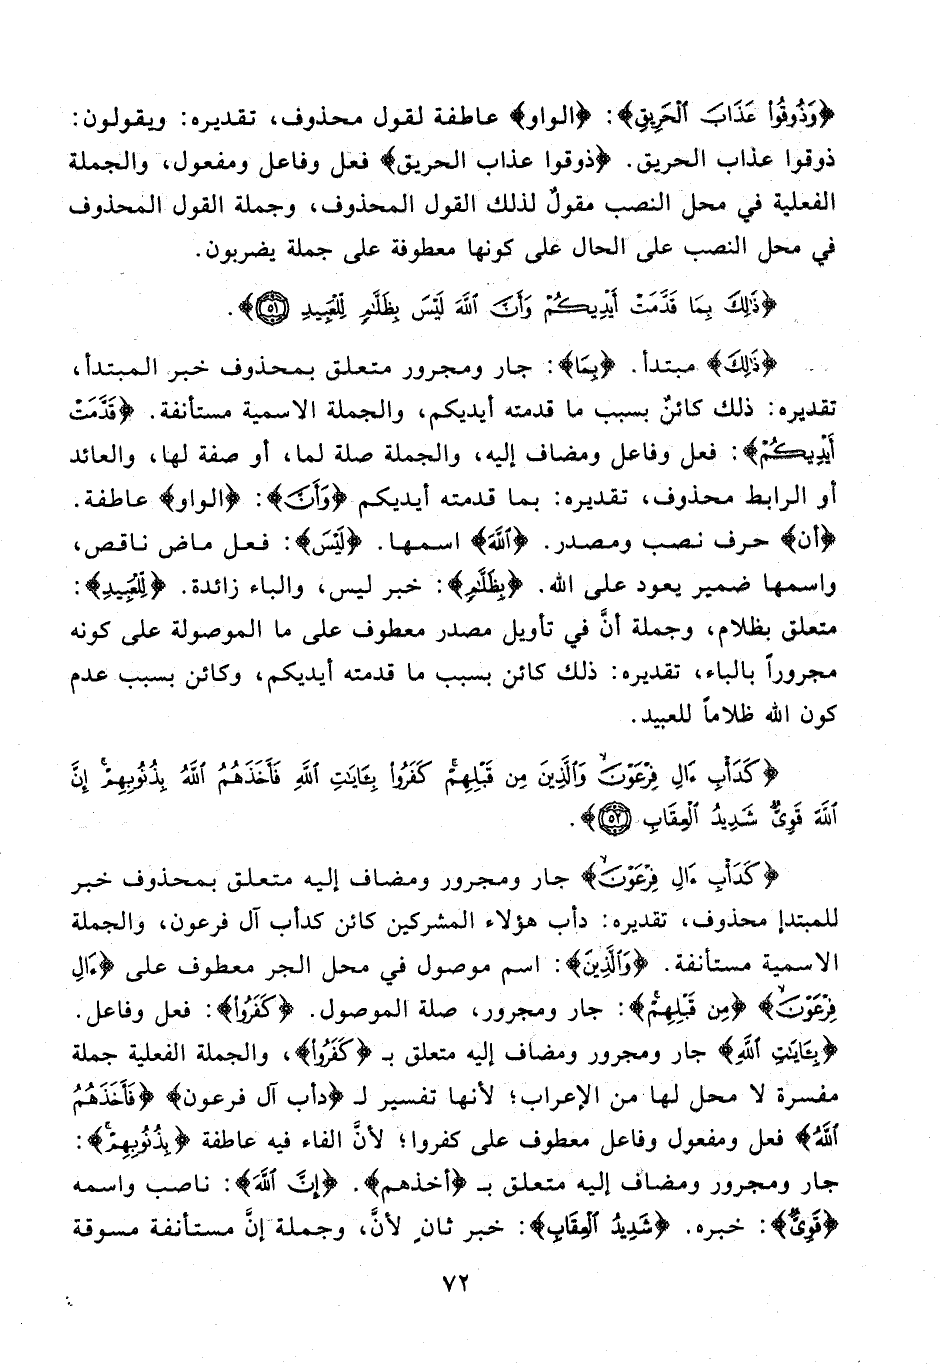 ﴿وَذُوقُوا۟ عَذَابَ ٱلْحَرِيقِ﴾: ﴿الواو﴾ عاطفة لقول محذوف، تقديره: ويقولون:
ذوقوا عذاب الحريق. ﴿ذوقوا عذاب الحريق﴾ فعل وفاعل ومفعول، والجملة
الفعلية في محل النصب مقولٌ لذلك القول المحذوف، وجملة القول المحذوف
في محل النصب على الحال على كونها معطوفة على جملة يضربون.
﴿ذَٰلِكَ بِمَا قَدَّمَتْ أَيْدِيكُمْ وَأَنَّ ٱللَّهَ لَيْسَ بِظَلَّٰمٍ لِّلْعَبِيدِ ٥١﴾.
﴿ذَٰلِكَ﴾ مبتدأ. ﴿بِمَا﴾: جار ومجرور متعلق بمحذوف خبر المبتدأ،
تقديره: ذلك كائنٌ بسبب ما قدمته أيديكم، والجملة الاسمية مستأنفة. ﴿قَدَّمَتْ
أَيْدِيكُمْ﴾: فعل وفاعل ومضاف إليه، والجملة صلة لما، أو صفة لها، والعائد
أو الرابط محذوف، تقديره: بما قدمته أيديكم ﴿وَأَنَّ﴾: ﴿الواو﴾ عاطفة.
﴿أن﴾ حرف نصب ومصدر. ﴿ٱللَّهَ﴾ اسمها. ﴿لَيْسَ﴾: فعل ماض ناقص،
واسمها ضمير يعود على الله. ﴿بِظَلَّٰمٍ﴾: خبر ليس، والباء زائدة. ﴿لِّلْعَبِيدِ﴾:
متعلق بظلام، وجملة أنَّ في تأويل مصدر معطوف على ما الموصولة على كونه
مجروراً بالباء، تقديره: ذلك كائن بسبب ما قدمته أيديكم، وكائن بسبب عدم
كون الله ظلاماً للعبيد.
﴿كَدَأْبِ ءَالِ فِرْعَوْنَ ۙ وَٱلَّذِينَ مِن قَبْلِهِمْ ۚ كَفَرُوا۟ بِـَٔايَٰتِ ٱللَّهِ فَأَخَذَهُمُ ٱللَّهُ بِذُنُوبِهِمْ ۗ إِنَّ
ٱللَّهَ قَوِىٌّ شَدِيدُ ٱلْعِقَابِ ٥٢﴾.
﴿كَدَأْبِ ءَالِ فِرْعَوْنَ ۙ﴾ جار ومجرور ومضاف إليه متعلق بمحذوف خبر
للمبتدإ محذوف، تقديره: دأب هؤلاء المشركين كائن كدأب آل فرعون، والجملة
الاسمية مستأنفة. ﴿وَٱلَّذِينَ﴾: اسم موصول في محل الجر معطوف على ﴿ءَالِ
فِرْعَوْنَ ۙ﴾ ﴿مِن قَبْلِهِمْ ۚ﴾: جار ومجرور، صلة الموصول. ﴿كَفَرُوا۟﴾: فعل وفاعل.
﴿بِـَٔايَٰتِ ٱللَّهِ﴾ جار ومجرور ومضاف إليه متعلق بـ ﴿كَفَرُوا۟﴾، والجملة الفعلية جملة
مفسرة لا محل لها من الإعراب؛ لأنها تفسير لـ ﴿دأب آل فرعون﴾ ﴿فَأَخَذَهُمُ
ٱللَّهُ﴾ فعل ومفعول وفاعل معطوف على كفروا؛ لأنَّ الفاء فيه عاطفة ﴿بِذُنُوبِهِمْ ۗ﴾:
جار ومجرور ومضاف إليه متعلق بـ ﴿أخذهم﴾. ﴿إِنَّ ٱللَّهَ﴾: ناصب واسمه
﴿قَوِىٌّ﴾: خبره. ﴿شَدِيدُ ٱلْعِقَابِ﴾: خبر ثانٍ لأنَّ، وجملة إنَّ مستأنفة مسوقة
٧٢